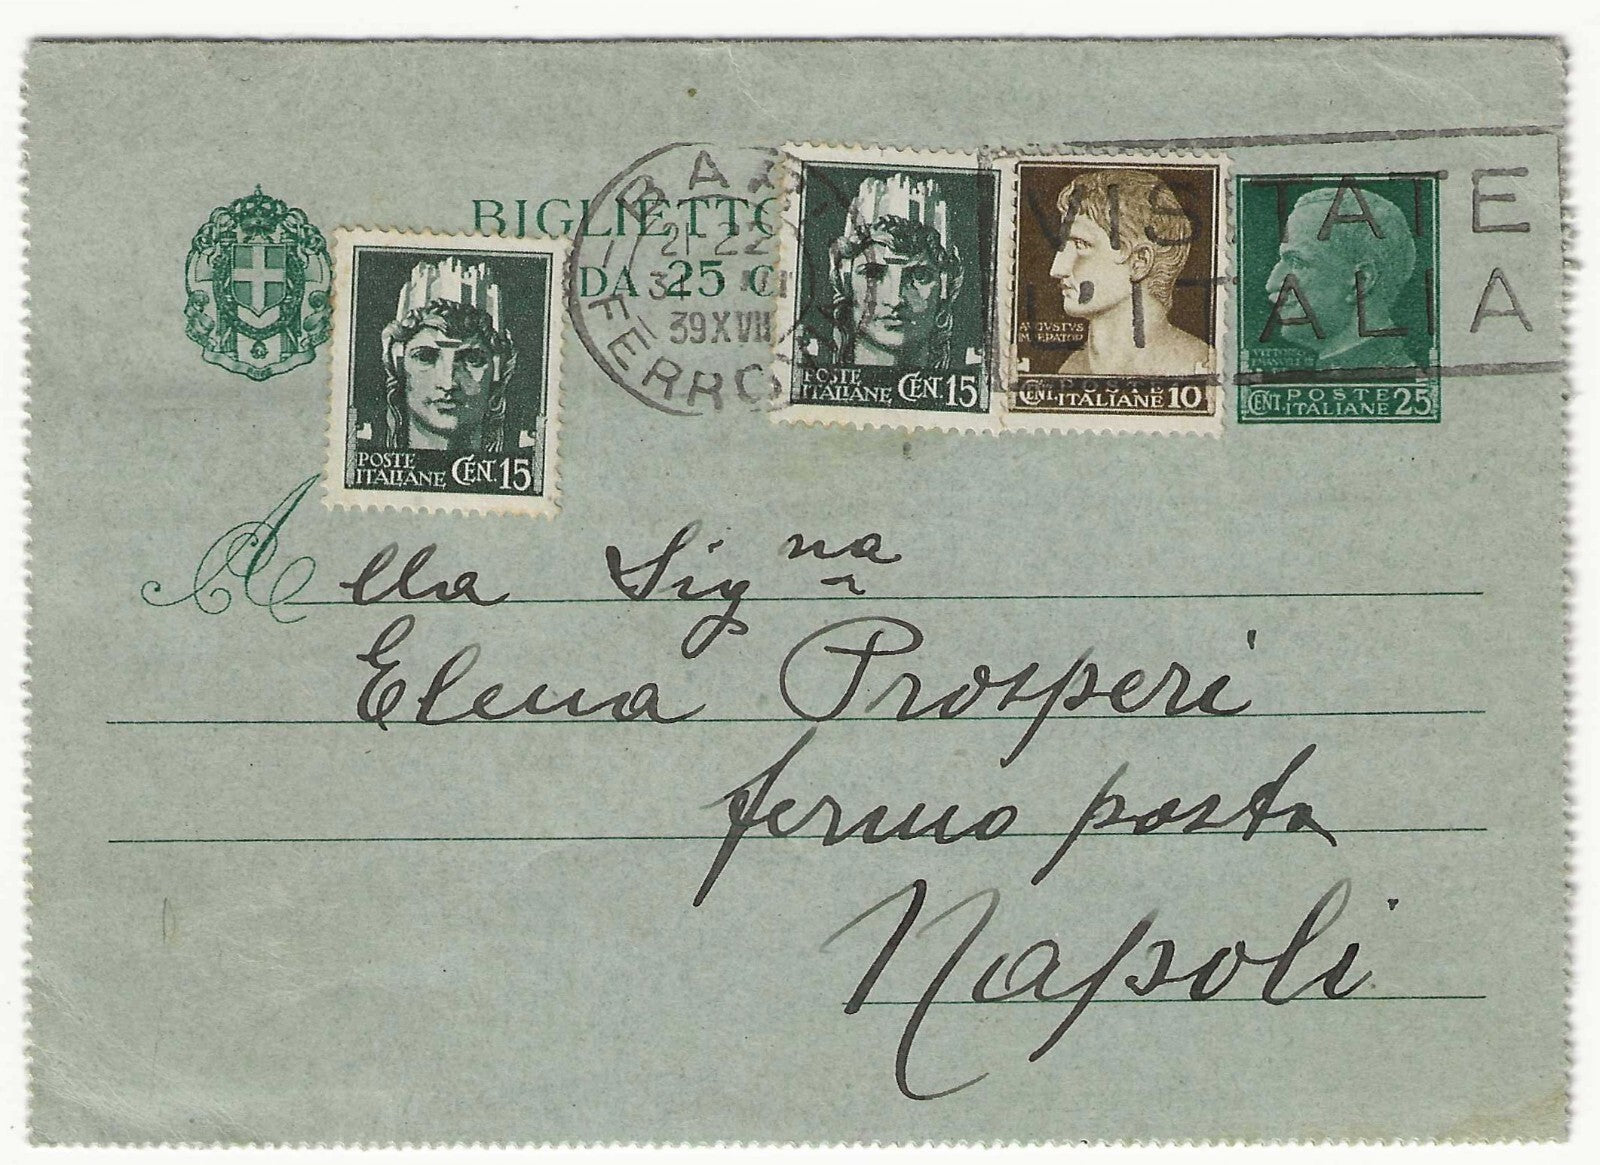 BIGLIETTO
DA 25 C
BARI
FERROVIA
21-22
39XVII
VISITATE
L'ITALIA
POSTE
ITALIANE CENT. 15
POSTE
ITALIANE CENT. 15
AVGVSTVS
IMPERATOR
CENT. POSTE
ITALIANE 10
VITTORIO
CENT. POSTE
ITALIANE 25
Alla Signa
Elena Prosperi
fermo posta
Napoli